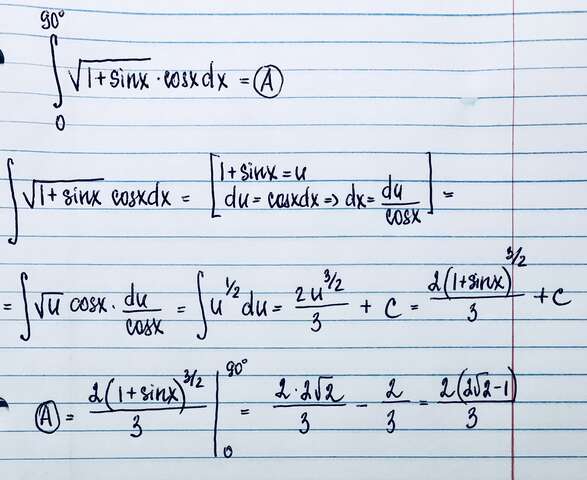 ∫₀^90° √(1+sinx) · cosx dx = Ⓐ
∫ √(1+sinx) cosxdx = [1+sinx = u
du = cosxdx => dx = du/cosx] =
= ∫ √u cosx · du/cosx = ∫ u^1/2 du = 2u^3/2 / 3 + C = 2(1+sinx)^3/2 / 3 + C
Ⓐ = 2(1+sinx)^3/2 / 3 |₀^90° = 2·2√2 / 3 − 2/3 = 2(2√2−1) / 3